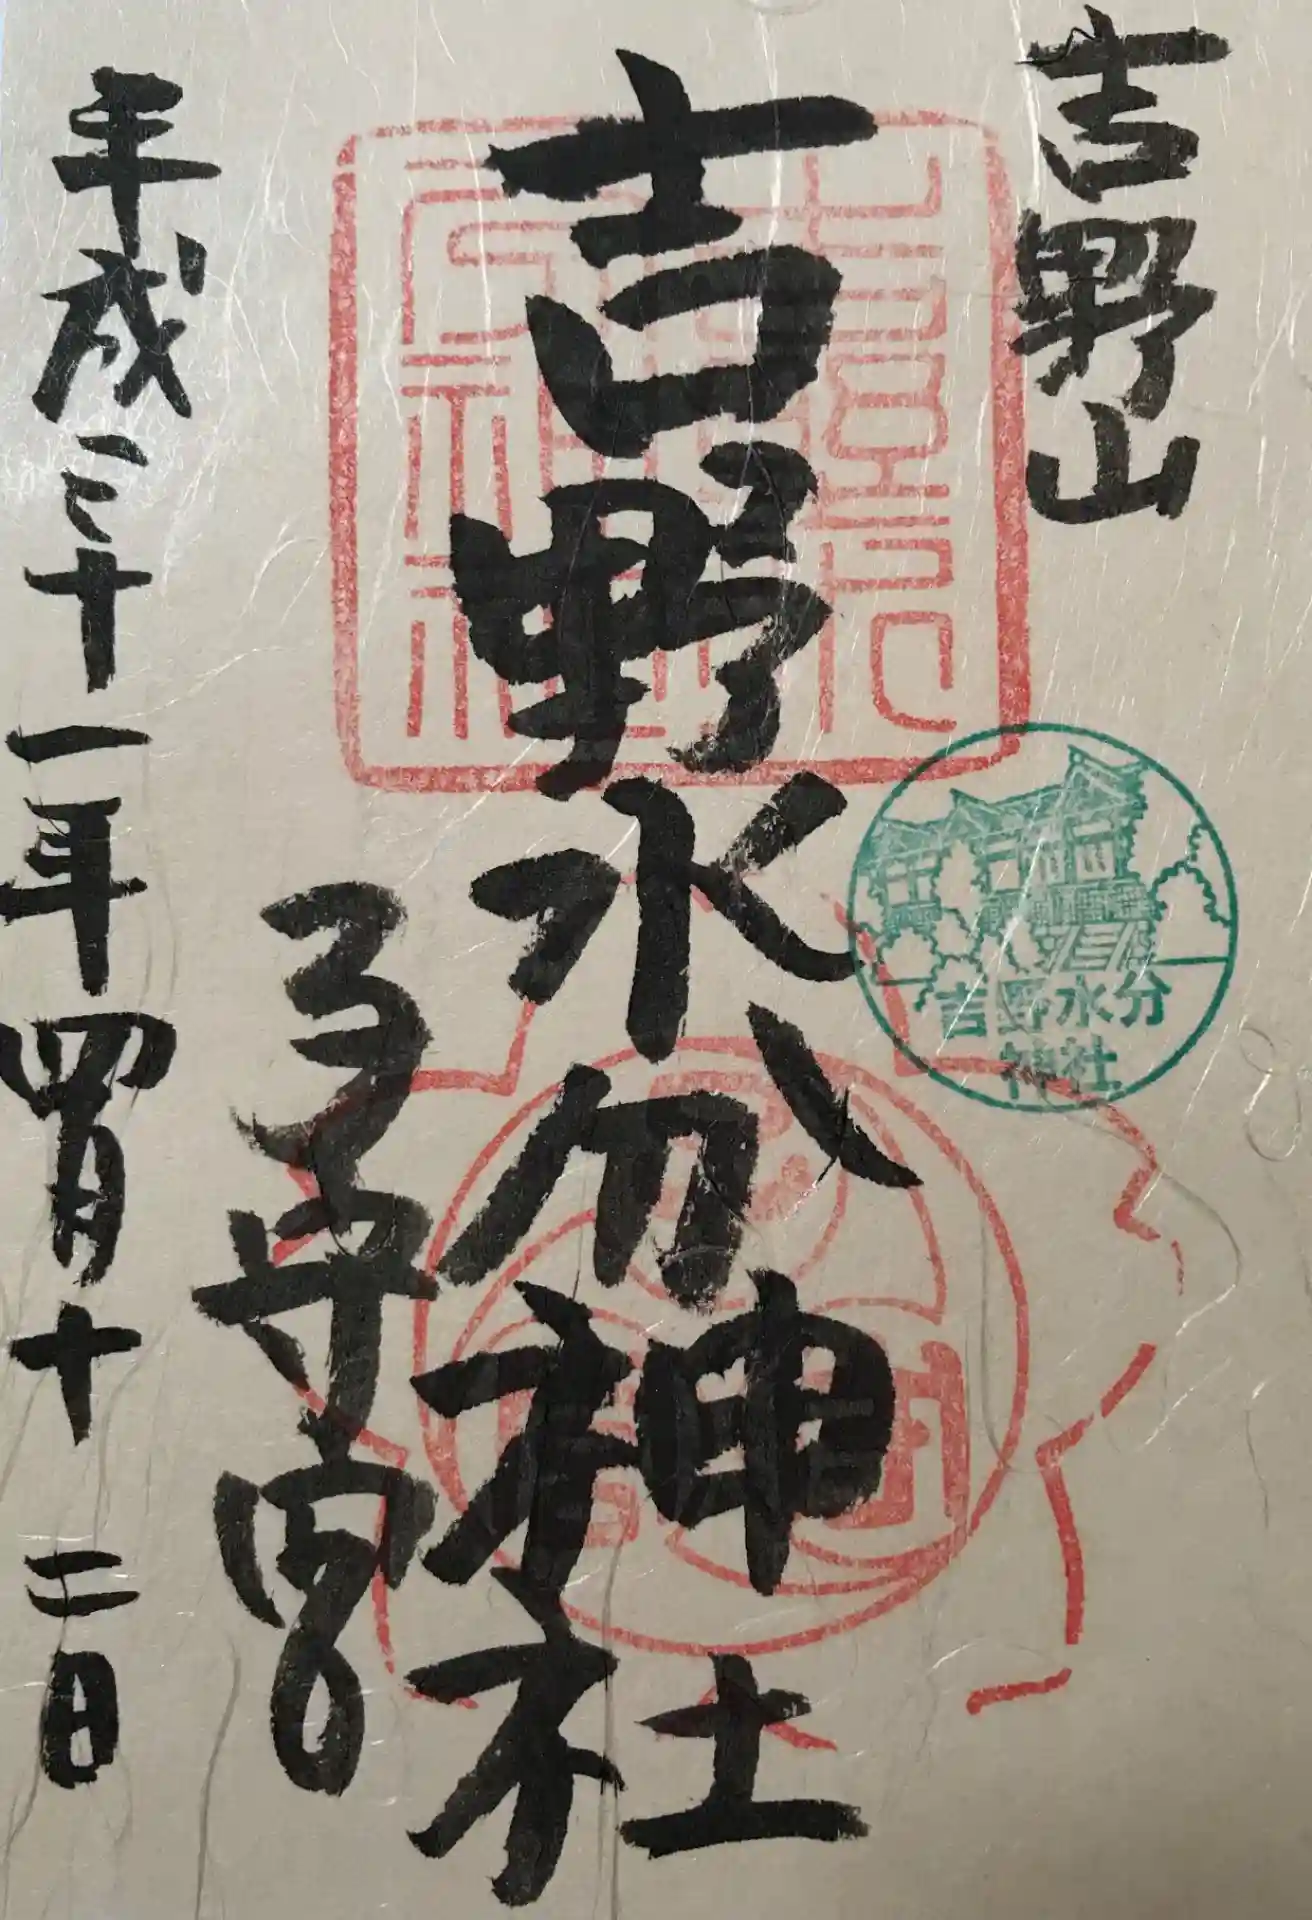 吉野山
吉野水分神社
子守宮
平成三十一年四月十二日
吉野水分
神社